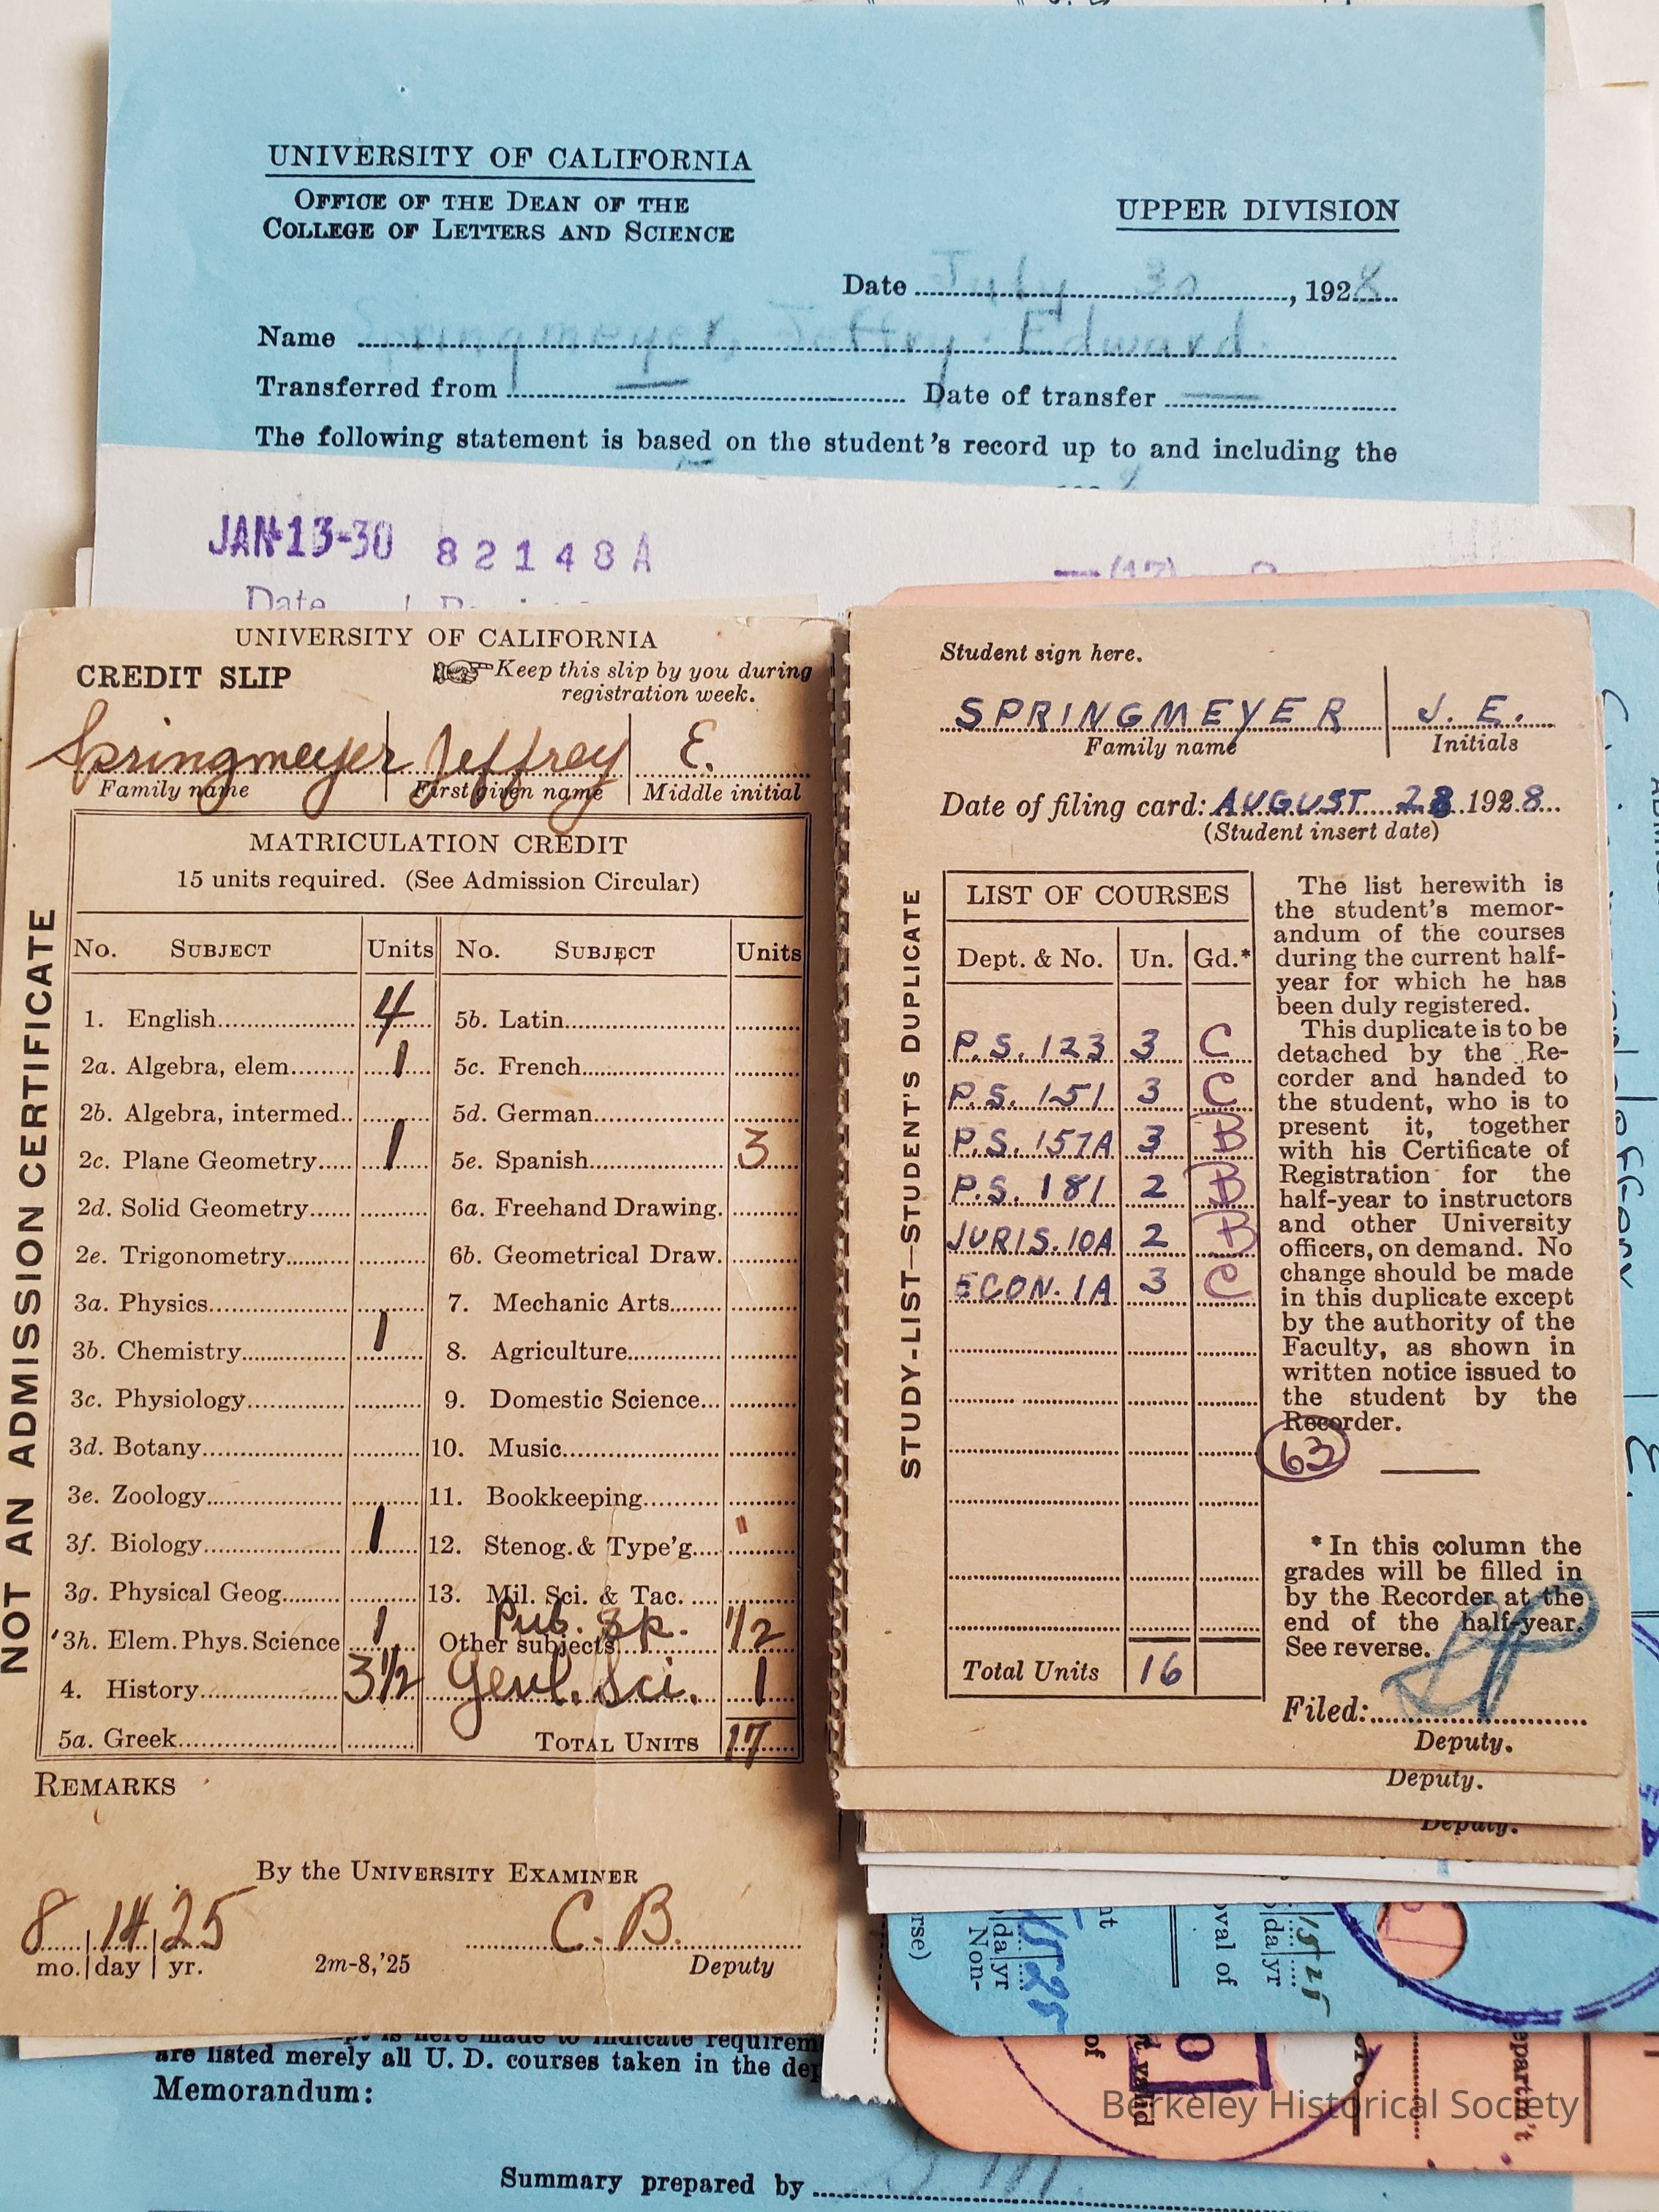 UNIVERSITY OF CALIFORNIA
OFFICE OF THE DEAN OF THE
COLLEGE OF LETTERS AND SCIENCE
UPPER DIVISION
Date July 30, 1928
Name Springmeyer, Jeffry Edward
Transferred from — Date of transfer —
The following statement is based on the student's record up to and including the
JAN-13-30 82148A
Date
UNIVERSITY OF CALIFORNIA
CREDIT SLIP
Keep this slip by you during
registration week.
Springmeyer Jeffrey E.
Family name First given name Middle initial
NOT AN ADMISSION CERTIFICATE
MATRICULATION CREDIT
15 units required. (See Admission Circular)
No. SUBJECT Units No. SUBJECT Units
1. English 4 5b. Latin
2a. Algebra, elem. 1 5c. French
2b. Algebra, intermed. 5d. German
2c. Plane Geometry 1 5e. Spanish 3
2d. Solid Geometry 6a. Freehand Drawing.
2e. Trigonometry 6b. Geometrical Draw.
3a. Physics 7. Mechanic Arts
3b. Chemistry 1 8. Agriculture
3c. Physiology 9. Domestic Science
3d. Botany 10. Music
3e. Zoology 11. Bookkeeping
3f. Biology 1 12. Stenog. & Type'g.
3g. Physical Geog. 13. Mil. Sci. & Tac.
3h. Elem. Phys. Science 1 Other subjects Pub. Sp. 1/2
4. History 3 1/2 Genl. Sci. 1
5a. Greek TOTAL UNITS 17
REMARKS
By the UNIVERSITY EXAMINER
8 14 25 C. B.
mo. day yr. 2m-8,'25 Deputy
Student sign here.
SPRINGMEYER J. E.
Family name Initials
Date of filing card: AUGUST 28 1928
(Student insert date)
STUDY-LIST—STUDENT'S DUPLICATE
LIST OF COURSES
Dept. & No. Un. Gd.*
P.S. 123 3 C
P.S. 151 3 C
P.S. 157A 3 B
P.S. 181 2 B
JURIS. 10A 2 B
ECON. 1A 3 C
Total Units 16
The list herewith is
the student's memor-
andum of the courses
during the current half-
year for which he has
been duly registered.
This duplicate is to be
detached by the Re-
corder and handed to
the student, who is to
present it, together
with his Certificate of
Registration for the
half-year to instructors
and other University
officers, on demand. No
change should be made
in this duplicate except
by the authority of the
Faculty, as shown in
written notice issued to
the student by the
Recorder.
63
* In this column the
grades will be filled in
by the Recorder at the
end of the half-year.
See reverse.
Filed:
Deputy.
Deputy.
Deputy.
are listed merely all U. D. courses taken in the
Memorandum:
Summary prepared by
Berkeley Historical Society